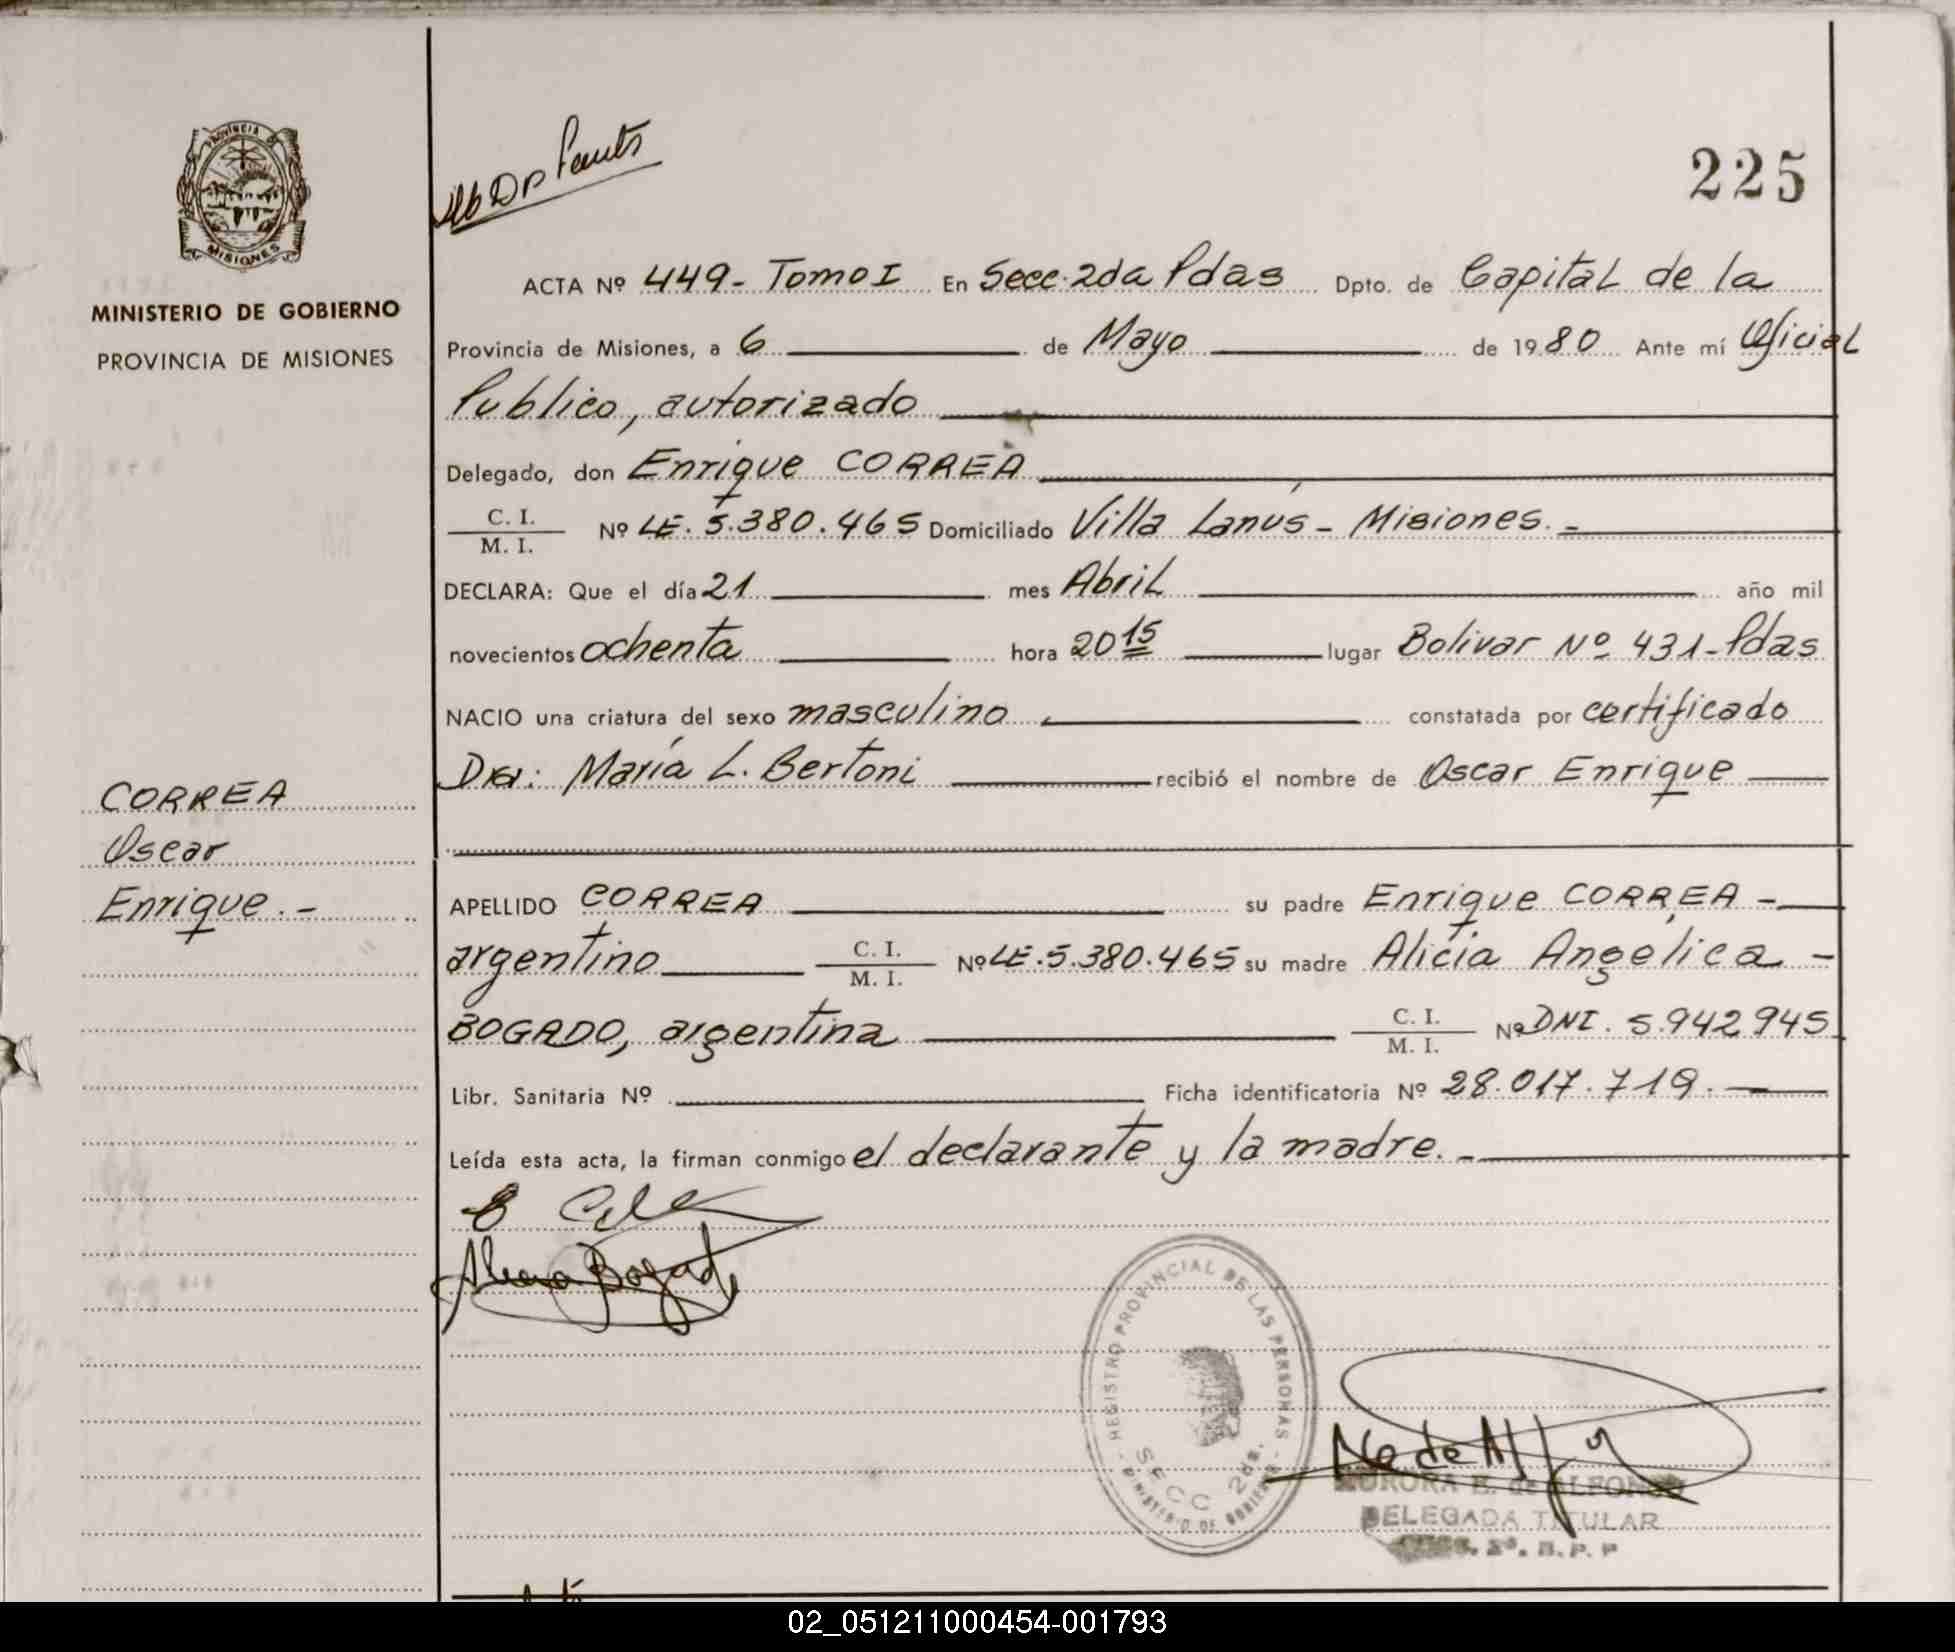 PROVINCIA DE
MISIONES
MINISTERIO DE GOBIERNO
PROVINCIA DE MISIONES
CORREA
Oscar
Enrique.-
225
ACTA Nº 449- Tomo I En Secc. 2da Pdas Dpto. de Capital de la
Provincia de Misiones, a 6 de Mayo de 1980 Ante mí Oficial
Publico, autorizado
Delegado, don Enrique CORREA
C. I.
M. I. Nº LE. 5.380.465 Domiciliado Villa Lanús - Misiones.-
DECLARA: Que el día 21 mes Abril año mil
novecientos ochenta hora 20 15 lugar Bolivar Nº 431-Pdas
NACIO una criatura del sexo masculino constatada por certificado
Dra: María L. Bertoni recibió el nombre de Oscar Enrique
APELLIDO CORREA su padre Enrique CORREA -
argentino C. I. M. I. Nº LE.5.380.465 su madre Alicia Angélica -
BOGADO, argentina C. I. M. I. Nº DNI. 5.942945
Libr. Sanitaria Nº Ficha identificatoria Nº 28.017.719.
Leída esta acta, la firman conmigo el declarante y la madre.-
Bogado
REGISTRO PROVINCIAL DE LAS PERSONAS
SECC 2da.
MINISTERIO DE GOBIERNO
AURORA E. de ALFONSO
DELEGADA TITULAR
02_051211000454-001793